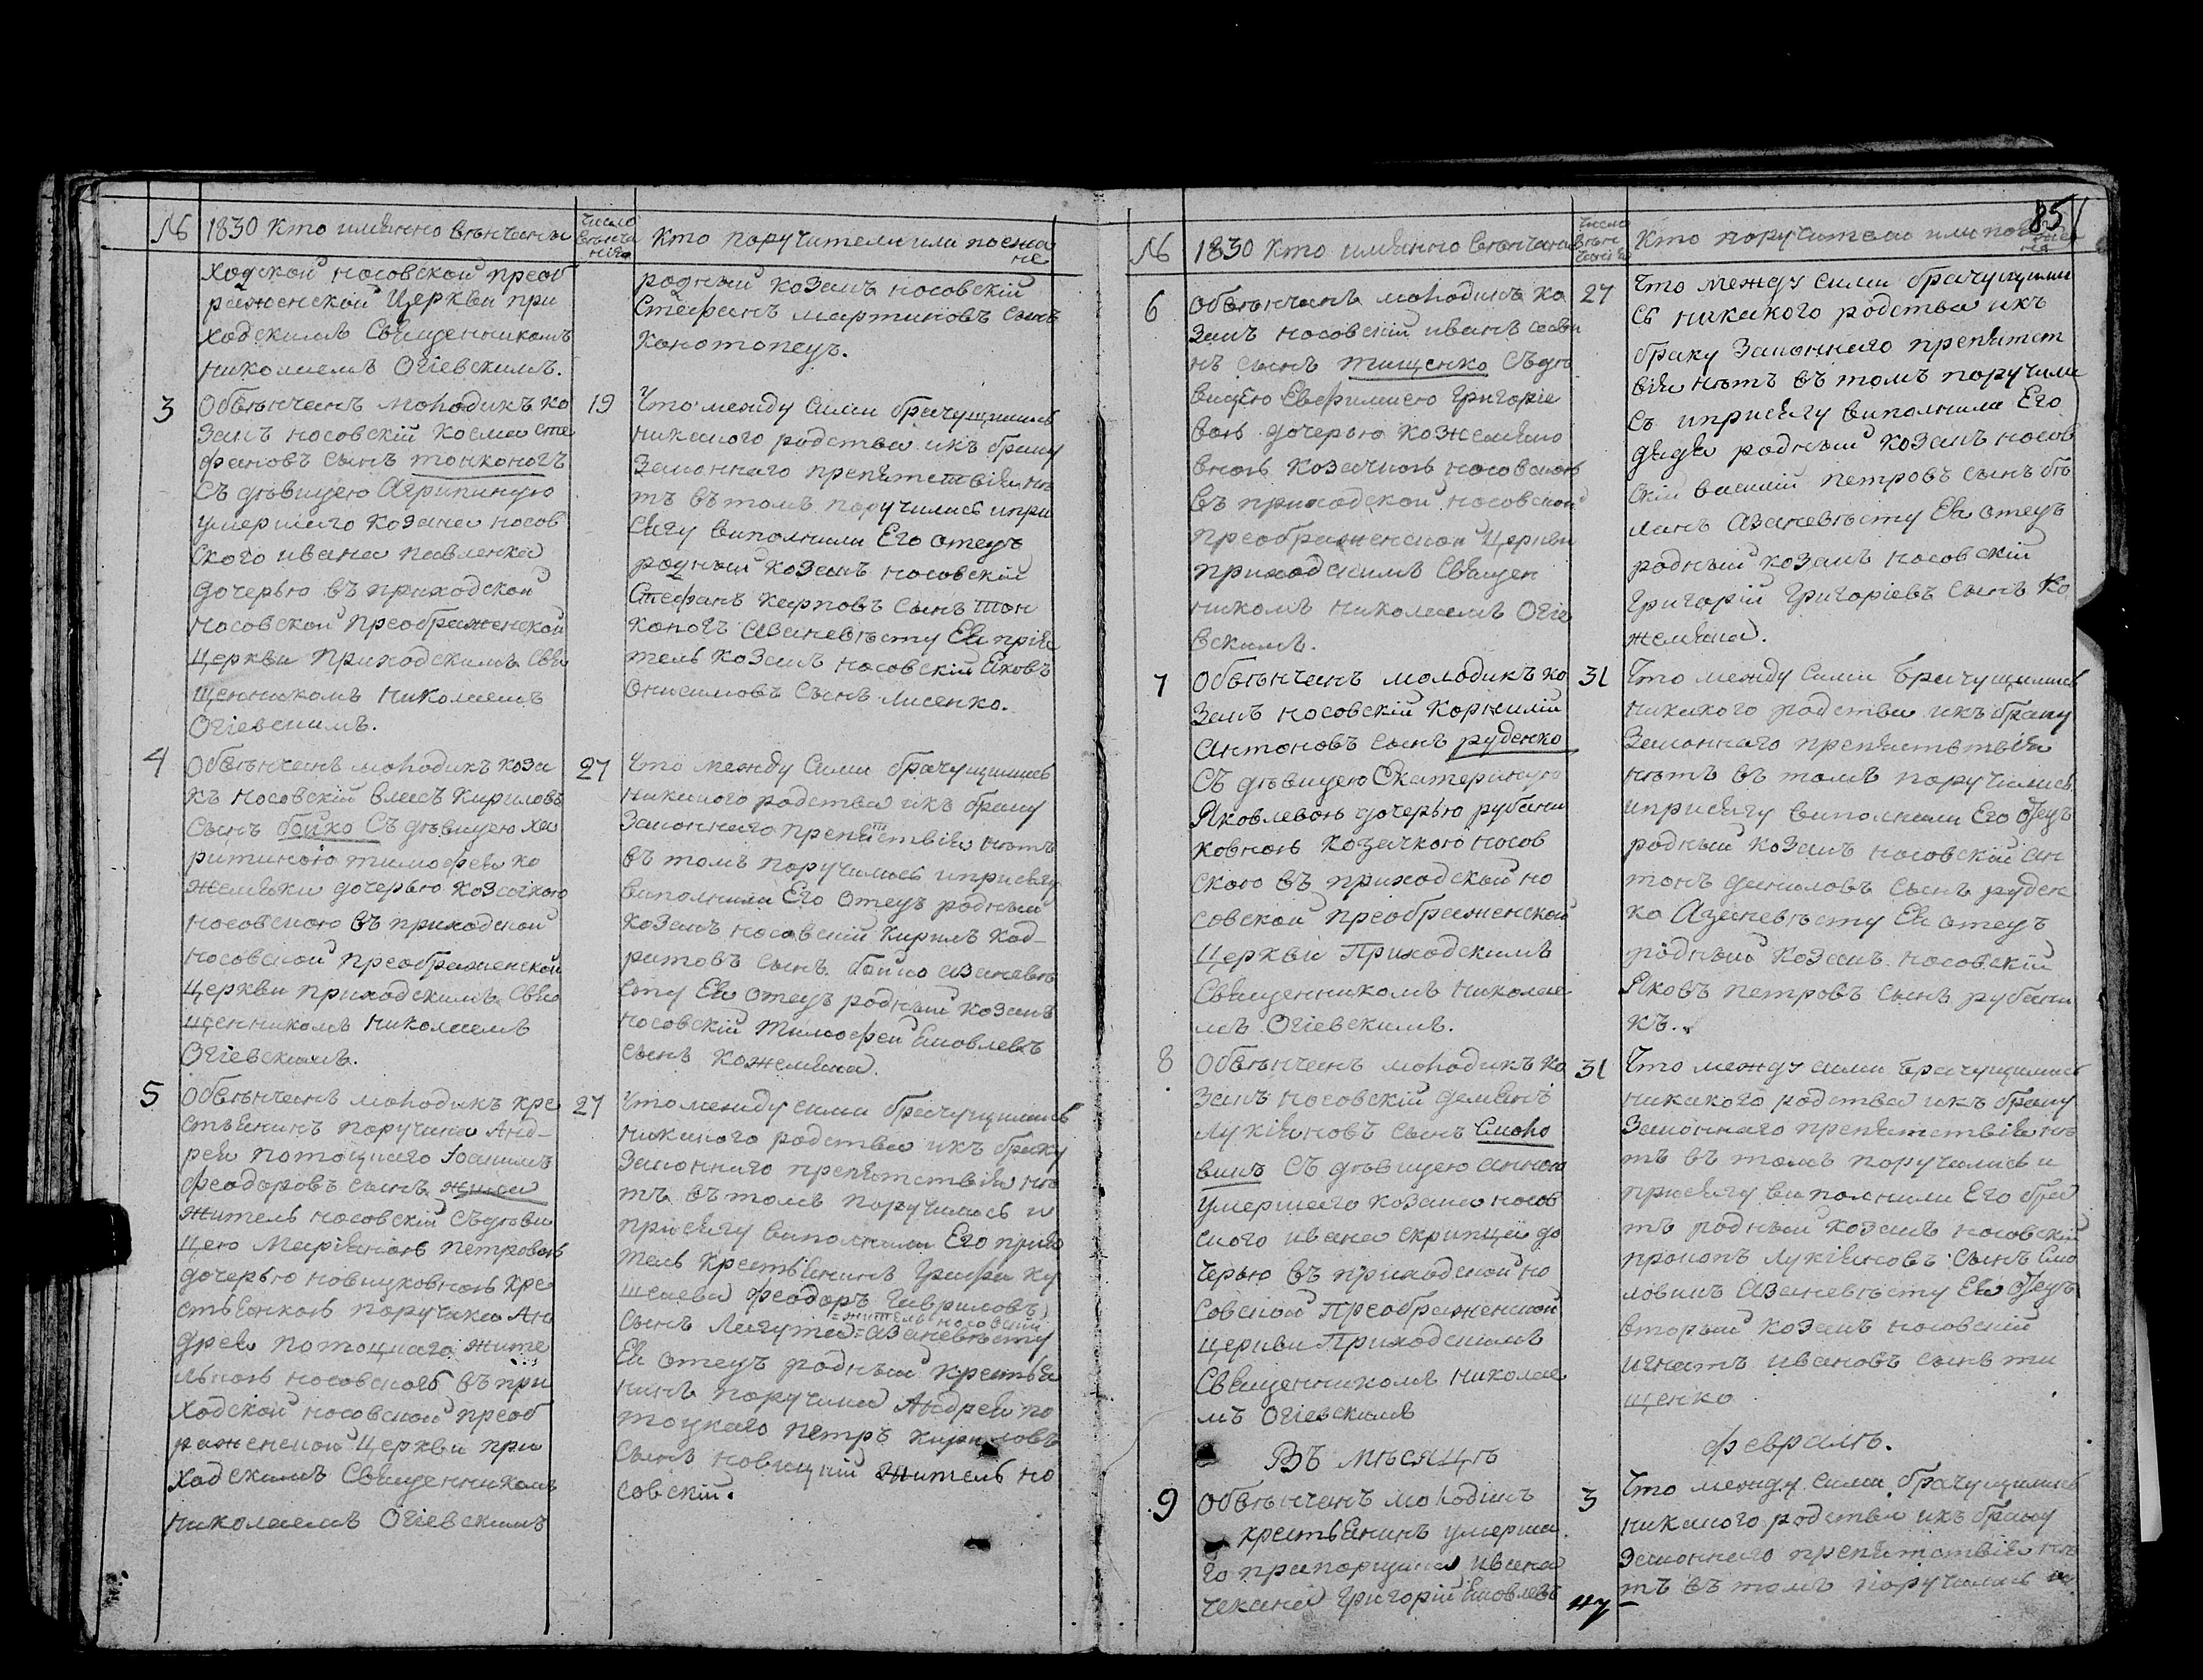 №
1830 Кто имянно венчаны
Число
Венча
нія
Кто поручители или поезжа
не
ходской носовской преоб
раженской Церкви при
ходскимъ Священникомъ
николаемъ Огіевскимъ.
родный козакъ носовскій
Стефанъ мартиновъ сынъ
Конотопецъ.
3
Обвѣнчанъ молодикъ ко
закъ носовскій косма сте
фановъ сынъ тонконогъ
Съ дѣвицею Агрипиною
умершаго козака носов
ского ивана павленка
дочерью въ приходской
носовской преображенской
Церкви Приходскимъ Свя
щенникомъ николаемъ
Огіевскимъ.
19
Что между сими брачущимись
никакого родства икъ браку
Законнаго препятствія нѣ
тъ въ томъ поручились ипри
сягу виполнили Его отецъ
родный козакъ носовскій
Стефанъ карповъ сынъ тон
коногъ азаневѣсту Ея прія
тель козакъ носовскій Яковъ
Онисимовъ сынъ лисенко.
4
Обвѣнчанъ молодикъ коза
къ носовскій власъ кириловъ
сынъ бойко Съ дѣвицею ха
ритиною тимофея ко
жемяки дочерью козачкою
носовскою въ приходской
носовской преображенской
Церкви приходскимъ Свя
щенникомъ николаемъ
Огіевскимъ.
27
Что между Сими брачущимись
никакого родства икъ браку
Законнаго препятствія нѣтъ
въ томъ поручились иприсягу
виполнили Его отецъ родный
козакъ носовскій кирилъ
ритовъ сынъ бойко азаневѣ
сту Ея отецъ родный козакъ
носовскій тимофей Яковлевъ
сынъ кожемяка.
5
Обвѣнчанъ молодикъ кре
стьянинъ поручика Анд-
рея потоцкаго Іоакимъ
феодоровъ сынъ
житель носовскій Съ дѣви
цею Маріяною петровою
дочерью новицковною кре
стьянкою поручика Ан
дрея потоцкаго жите
льною носовскою въ при
ходской носовской преоб
раженской Церкви при
ходскимъ Священникомъ
николаемъ Огіевскимъ
27
Что между сими брачущимись
никакого родства икъ браку
Законнаго препятствія нѣ
тъ въ томъ поручились и
присягу виполнили Его прія
тель крестьянинъ Графа ку
шелева феодоръ Гавриловъ
=житель носовскій
сынъ Лагута= азаневѣсту
Ея отецъ родный крестья
нинъ поручика Андрея по
тоцкаго петръ кириловъ
сынъ новицкий житель но
совскій.
85
№
1830 Кто имянно венчаны
Число
Венч
Кто поручители или
6
Обвѣнчанъ молодикъ ко
закъ носовскій иванъ
нъ сынъ тищенко Съ дѣ
вицею Евфимиею Григоріе
вою дочерью кожемяко
вною козачкою носовскою
въ приходской носовской
преображенской Церкви
приходскимъ Священ
никомъ николаемъ Огіе
вскимъ.
27
Что между сими брачущими
сь никакого родства икъ
браку Законнаго препятст
вія нѣтъ въ томъ поручили
сь иприсягу виполнили Его
дядя родный козакъ носов
скій василій петровъ сынъ бѣ
лакъ азаневѣсту Ея отецъ
родный козакъ носовскій
Григорій Григоріевъ сынъ ко
жемяка.
7
Обвѣнчанъ молодикъ ко
закъ носовскій корнилій
антоновъ сынъ руденко
Съ дѣвицею Екатериною
Яковлевою дочерью рубани
ковною козачкою носов
скою въ приходской но
совской преображенской
Церкви Приходскимъ
Священникомъ николае
мъ Огіевскимъ.
31
Что между сими брачущимись
никакого родства икъ браку
Законнаго препятствія
нѣтъ въ томъ поручились
иприсягу виполнили Его отецъ
родный козакъ носовскій ан
тонъ даниловъ сынъ руден
ко азаневѣсту Ея отецъ
родный козакъ носовскій
Яковъ петровъ сынъ рубани
къ.
8
Обвѣнчанъ молодикъ ко
закъ носовскій демянъ
Лукіяновъ сынъ Смоло
викъ Съ дѣвицею анною
умершаго козака носов
ского ивана скрипця до
черью въ приходской но
совской Преображенской
церкви Приходскимъ
Священникомъ николае
мъ Огіевскимъ
31
Что между сими брачущимись
никакого родства икъ браку
Законнаго препятствія нѣ
тъ въ томъ поручились и
присягу виполнили Его бра
тъ родный козакъ носовскій
прокопъ Лукіяновъ сынъ Смо
ловикъ азаневѣсту Ея отецъ
вторый козакъ носовскій
игнатъ ивановъ сынъ ти
щенко
Въ мѣсяцѣ
февралѣ.
9
Обвѣнчанъ молодикъ
крестьянинъ умерша
го прапорщика ивана
чекана Григорій Яковлевъ
3
Что между сими брачущимись
никакого родства икъ браку
Законнаго препятствія нѣ
тъ въ томъ поручились и